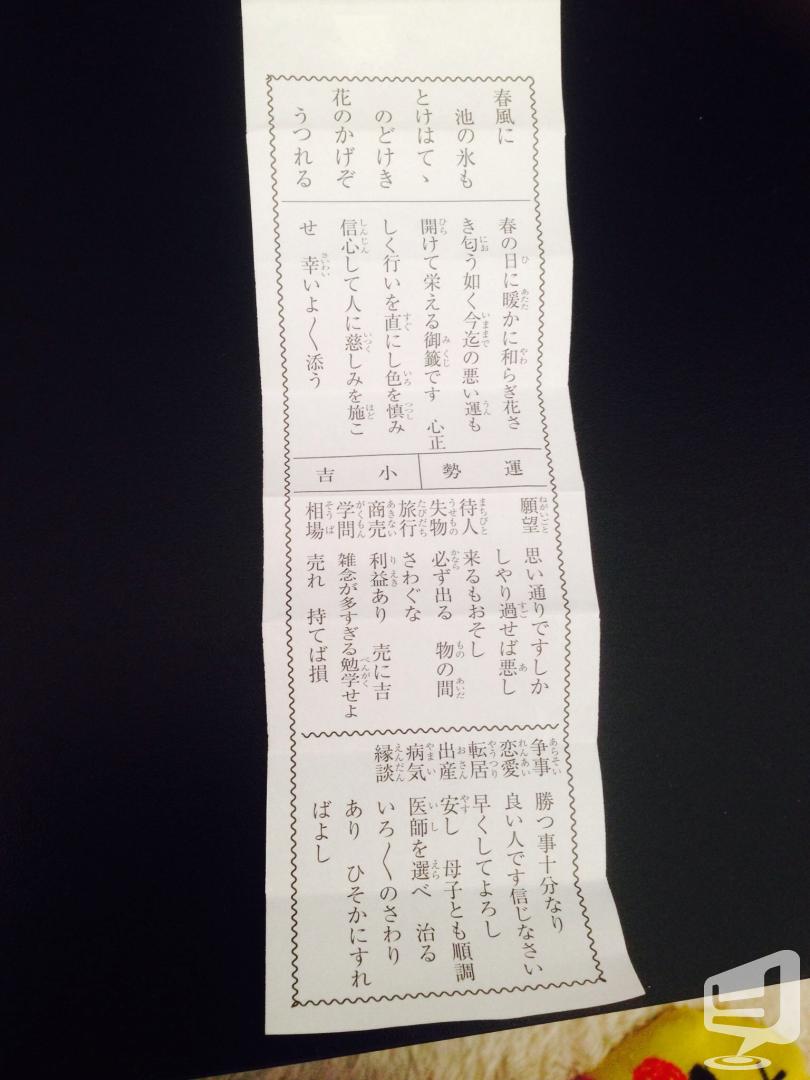 春風に
池の氷も
とけはてゝ
のどけき
花のかげぞ
うつれる
春の日に暖かに和らぎ花さ
き匂う如く今迄の悪い運も
開けて栄える御籤です　心正
しく行いを直にし色を慎み
信心して人に慈しみを施こ
せ　幸いよ〱添う
運勢　小吉
願望　思い通りですしか
しやり過せば悪し
待人　来るもおそし
失物　必ず出る　物の間
旅行　さわぐな
商売　利益あり　売に吉
学問　雑念が多すぎる勉学せよ
相場　売れ　持てば損
争事　勝つ事十分なり
恋愛　良い人です信じなさい
転居　早くしてよろし
出産　安し　母子とも順調
病気　医師を選べ　治る
縁談　いろ〱のさわり
あり　ひそかにすれ
ばよし